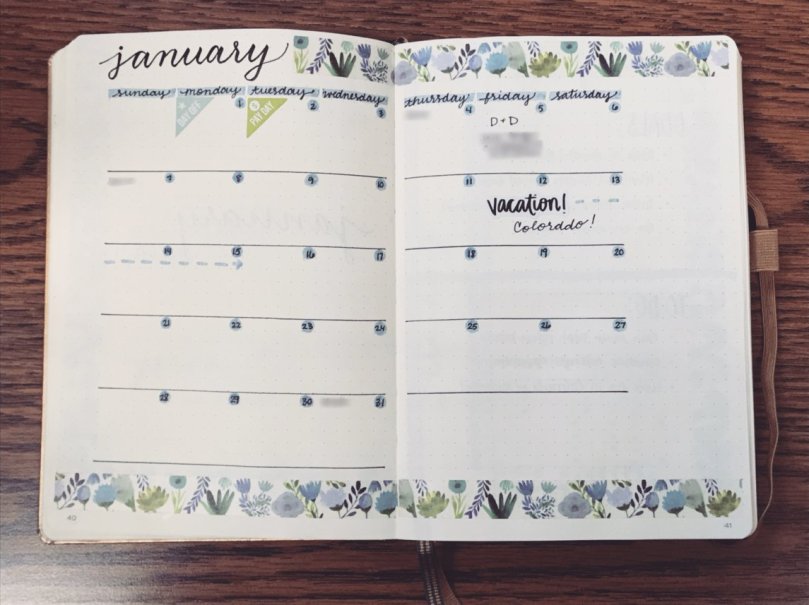 january
sunday monday tuesday wednesday thursday friday saturday
1 2 3 4 5 6
DAY OFF
$ PAY DAY
D+D
7 8 9 10 11 12 13
vacation!
Colorado!
14 15 16 17 18 19 20
21 22 23 24 25 26 27
28 29 30 31
40 41